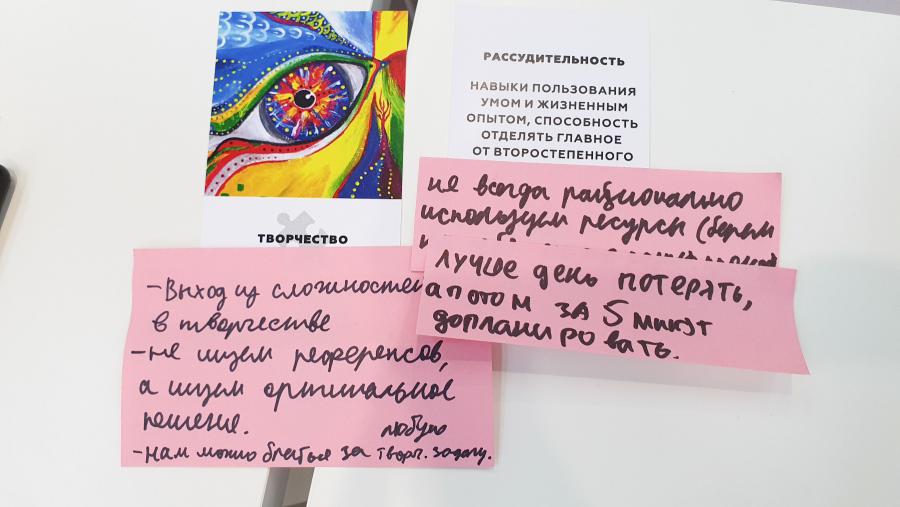 РАССУДИТЕЛЬНОСТЬ
НАВЫКИ ПОЛЬЗОВАНИЯ
УМОМ И ЖИЗНЕННЫМ
ОПЫТОМ, СПОСОБНОСТЬ
ОТДЕЛЯТЬ ГЛАВНОЕ
ОТ ВТОРОСТЕПЕННОГО
не всегда рационально
используем ресурсы (берем
ЛУЧШЕ ДЕНЬ ПОТЕРЯТЬ,
А ПОТОМ ЗА 5 МИНУТ
ДОПЛАНИРОВАТЬ.
ТВОРЧЕСТВО
- Выход из сложностей
в творчестве
- не ищем референсов,
а ищем оптимальное
решение.
любую
- нам можно браться за творч. задачу.